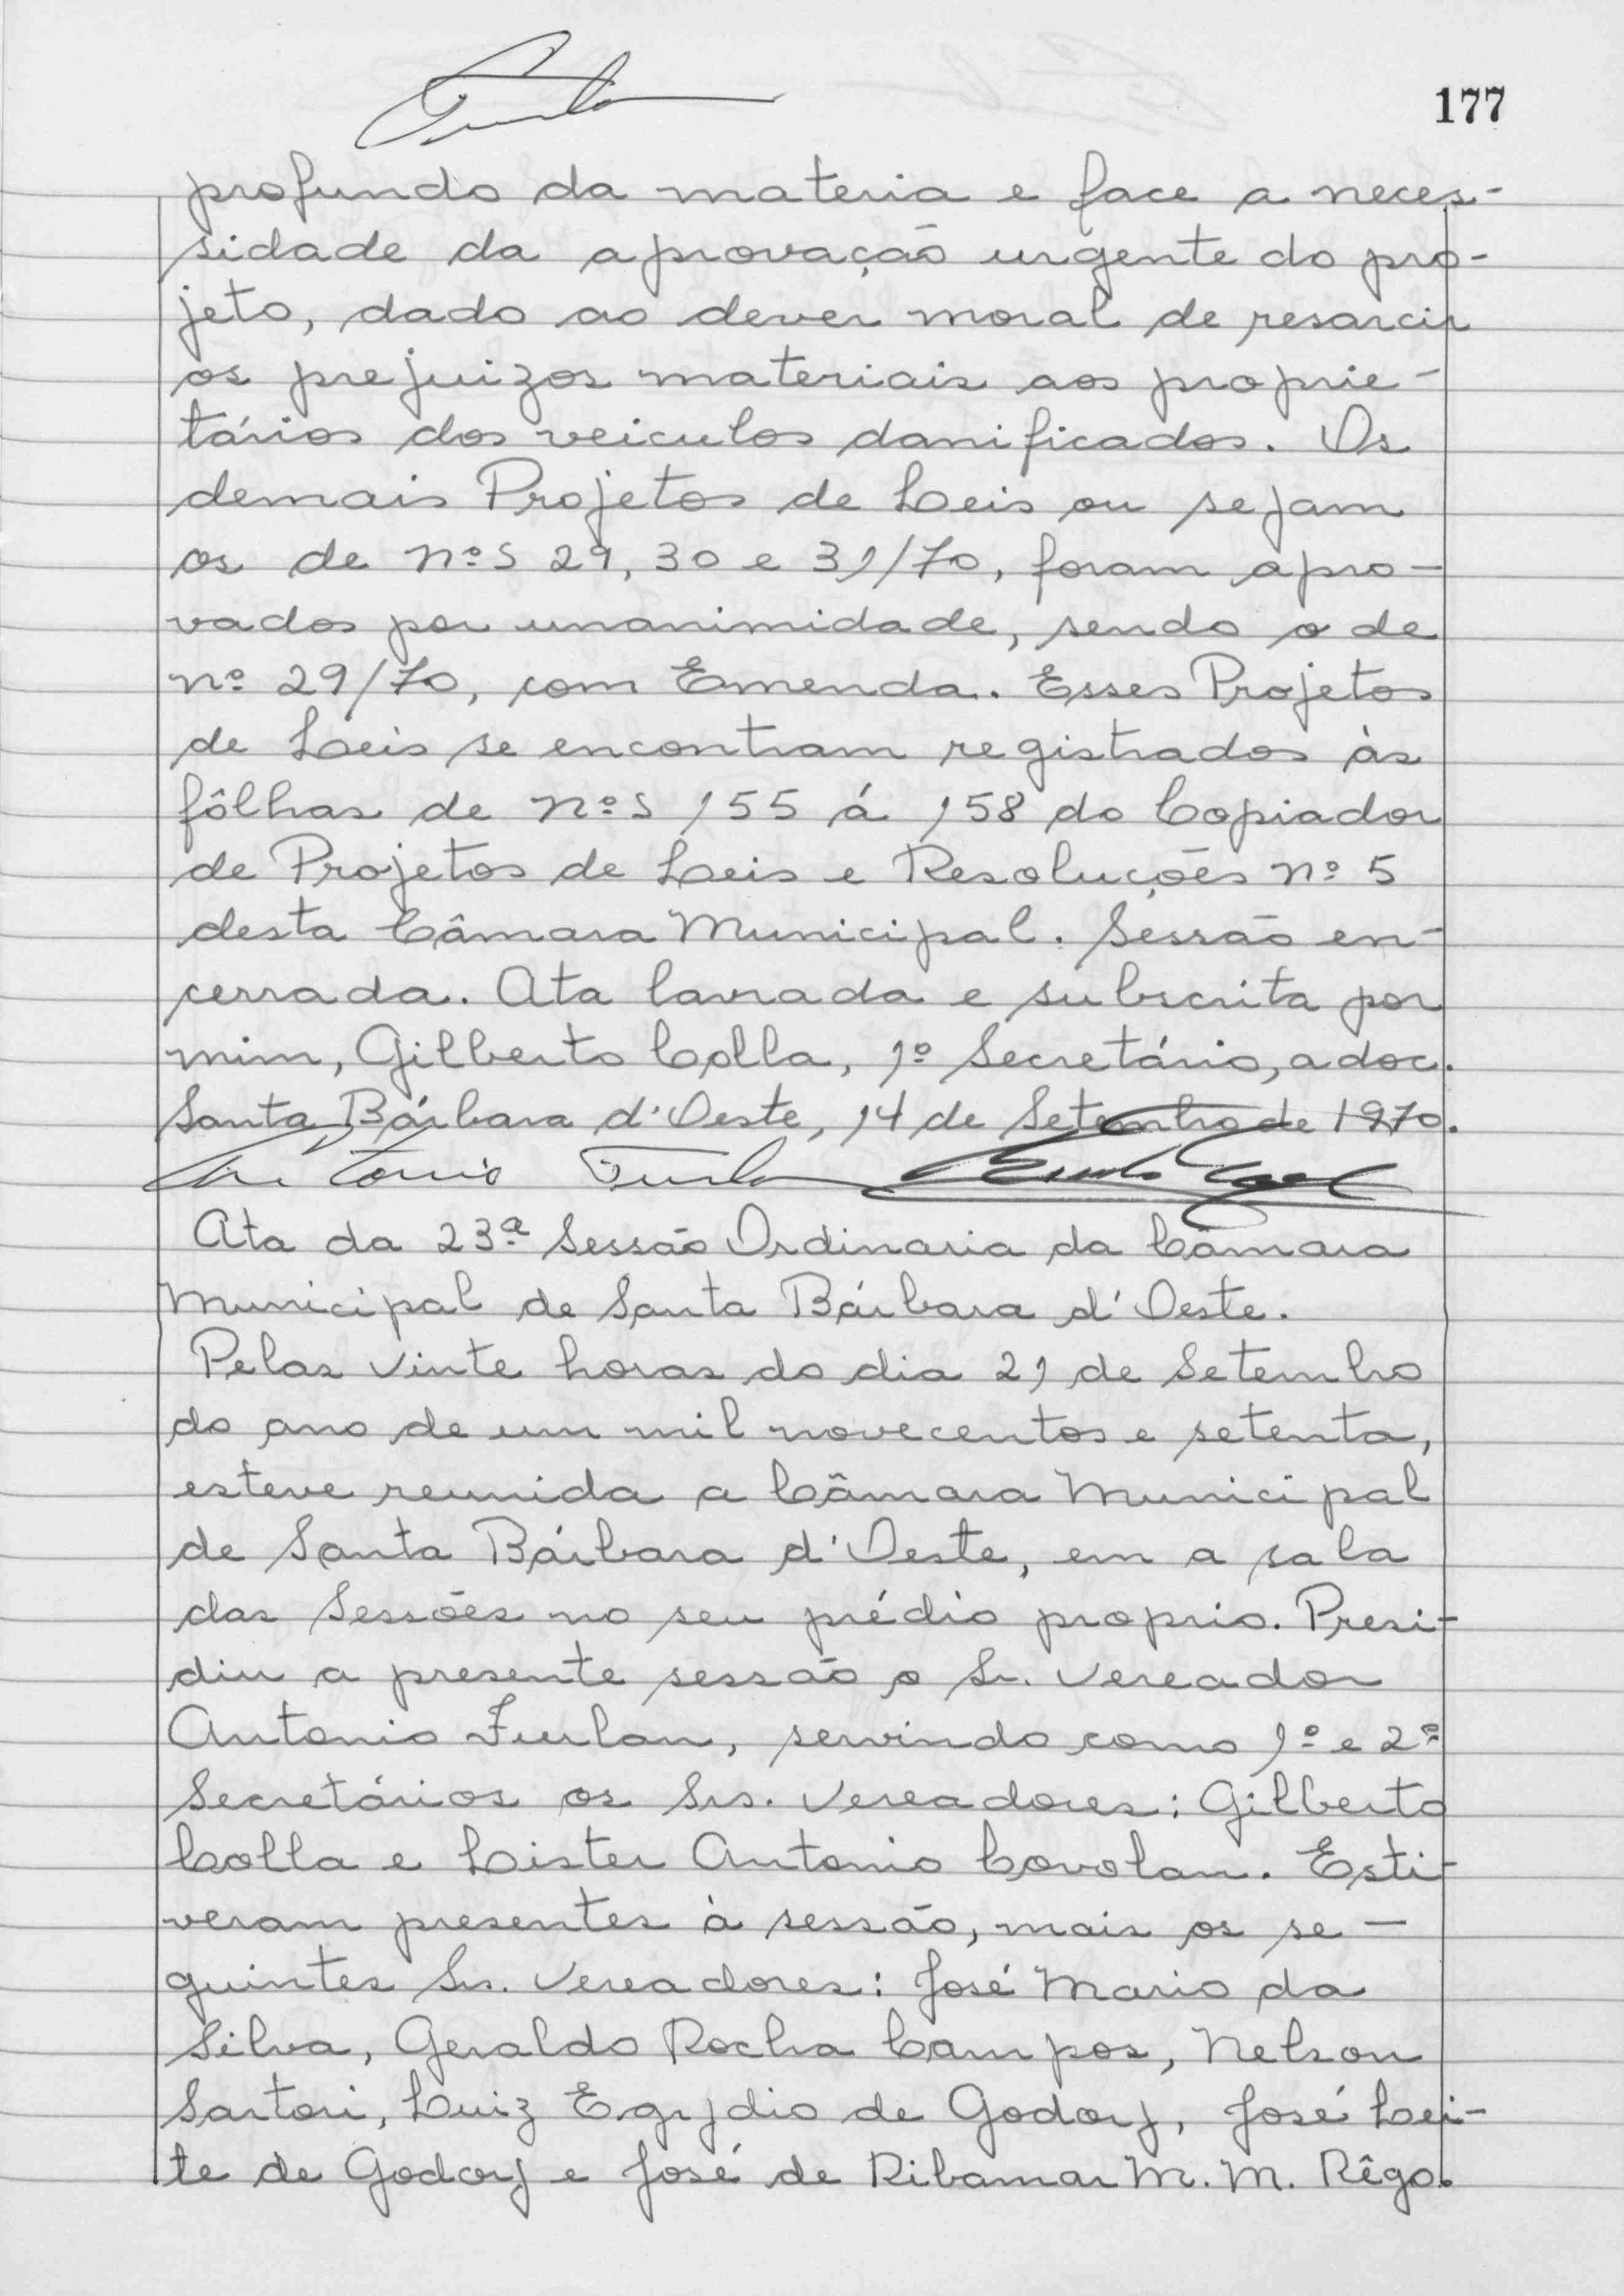 177
profundo da materia e face a neces-
sidade da aprovação urgente do pro-
jeto, dado ao dever moral de resarcir
os prejuizos materiais aos proprie-
tários dos veiculos danificados. Os
demais Projetos de Leis ou sejam
os de nºs 29, 30 e 31/70, foram apro-
vados por unanimidade, sendo o de
nº 29/70, com Emenda. Esses Projetos
de Leis se encontram registrados às
fôlhas de nºs 155 á 158 do Copiador
de Projetos de Leis e Resoluções nº 5
desta Câmara Municipal. Sessão en-
cerrada. Ata lavrada e subscrita por
mim, Gilberto Colla, 1º Secretário, adoc.
Santa Bárbara d'Oeste, 14 de Setembro de 1970.
Antonio Furlan
Ata da 23ª Sessão Ordinaria da Câmara
Municipal de Santa Bárbara d'Oeste.
Pelas vinte horas do dia 21 de Setembro
do ano de um mil novecentos e setenta,
esteve reunida a Câmara Municipal
de Santa Bárbara d'Oeste, em a sala
das Sessões no seu prédio proprio. Presi-
diu a presente sessão o Sr. Vereador
Antonio Furlan, servindo como 1º e 2º
Secretários os Srs. Vereadores: Gilberto
Colla e Lister Antonio Covolan. Esti-
veram presentes à sessão, mais os se-
guintes Srs. Vereadores: José Mario da
Silva, Geraldo Rocha Campos, Nelson
Sartori, Luiz Egydio de Godoy, José Lei-
te de Godoy e José de Ribamar M. M. Rêgo.